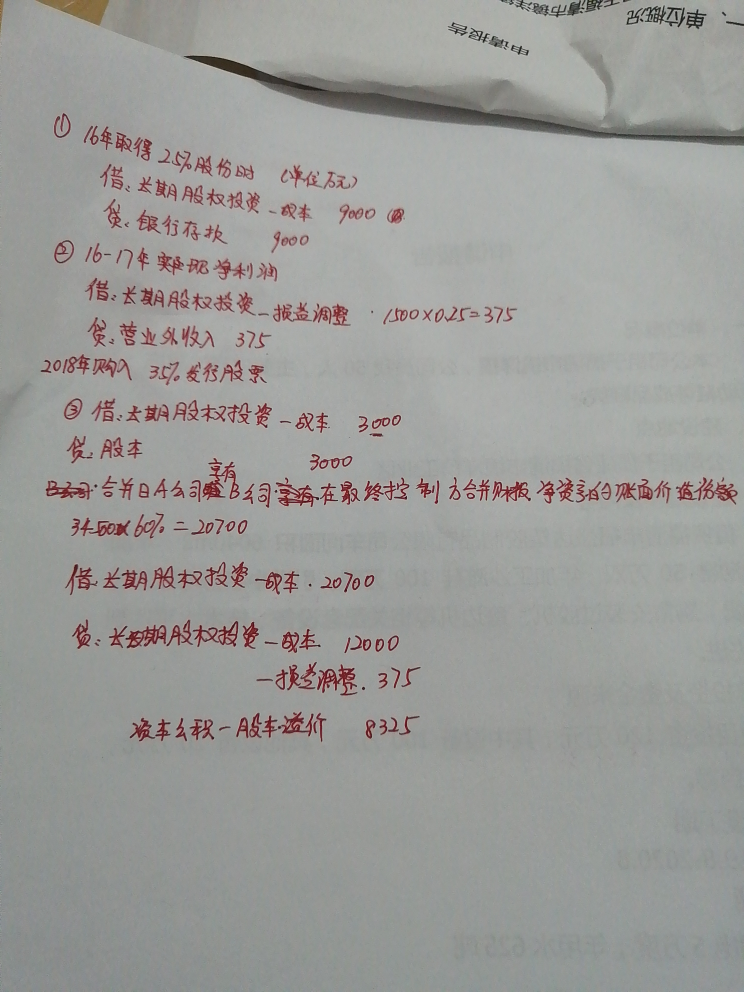 一、单位概况
申请报告
① 16年取得25%股份时 (单位万元)
借:长期股权投资-成本 9000
贷:银行存款 9000
② 16-17年实现净利润
借:长期股权投资-损益调整 1500×0.25=375
贷:营业外收入 375
2018年购入 35%发行股票
③ 借:长期股权投资-成本 3000
贷:股本 3000
合并日A公司享有B公司在最终控制方合并财报净资产的账面价值份额
34500×60%=20700
借:长期股权投资-成本.20700
贷:长期股权投资-成本. 12000
-损益调整. 375
资本公积-股本溢价 8325